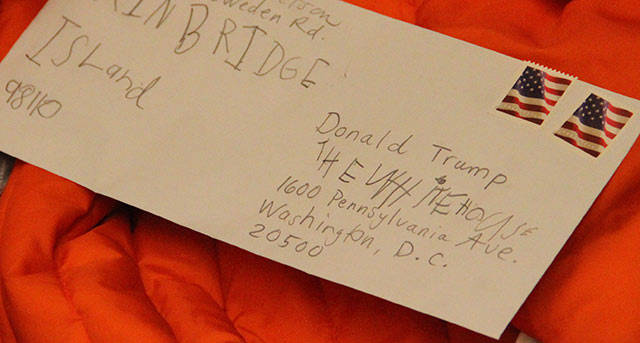 weden Rd.
AINBRIDGE
ISLand
98110
Donald Trump
THE WHITEHOUSE
1600 Pennsylvania Ave.
Washington, D.C.
20500